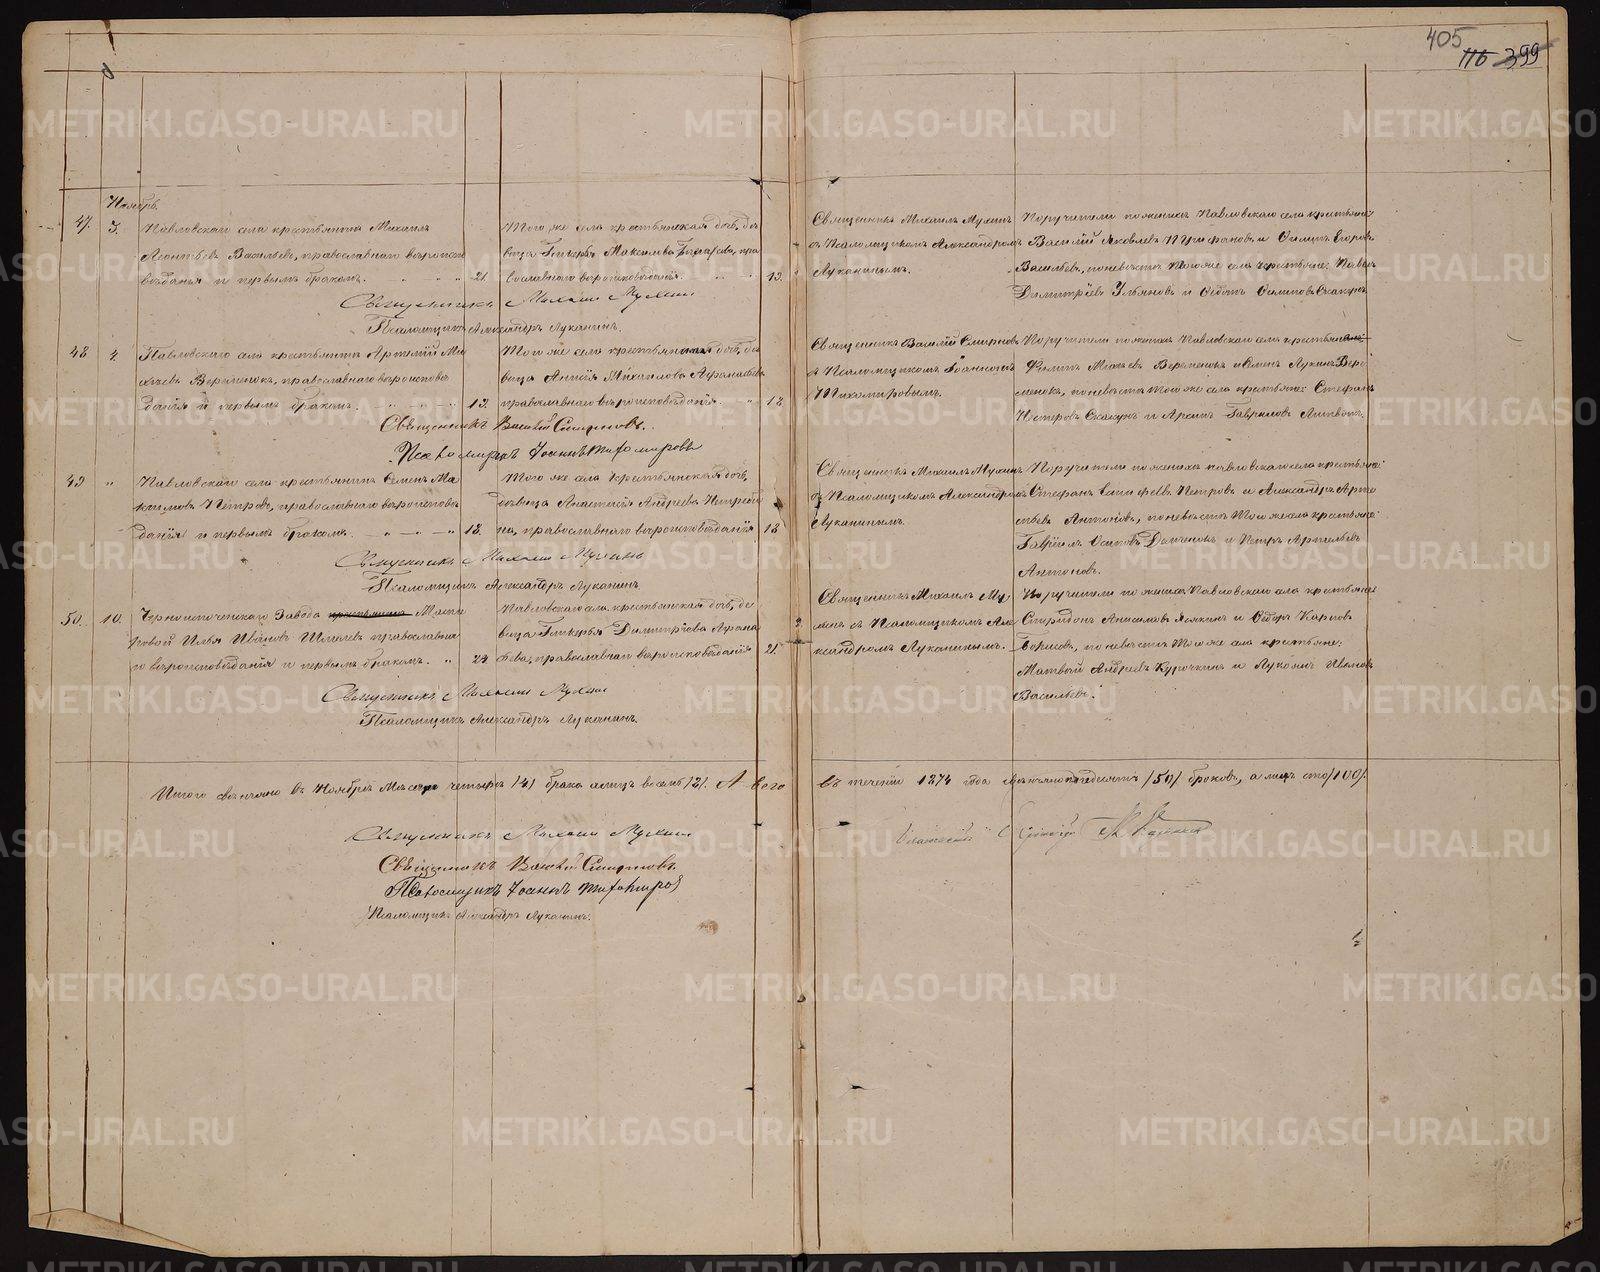 405
116 399
Ноябрь.
47. 3. Павловскаго села крестьянинъ Михаилъ
Леонтьевъ Васильевъ, православнаго вѣроиспо
вѣданія и первымъ бракомъ. 21.
Того же села крестьянская дочь, дѣ
вица Гликерья Максимова, пра
вославнаго вѣроисповѣданія. 19.
Священникъ Михаилъ Мухинъ
съ Псаломщикомъ Александромъ
Луканинымъ.
Поручители по женихѣ Павловскаго села крестьяне:
Василій Яковлевъ и Филиппъ Егоровъ
Васильевъ, по невѣстѣ того же села крестьяне: Павелъ
Димитріевъ Ульяновъ и Ѳедотъ Скакунъ.
Священникъ Михаилъ Мухинъ
Псаломщикъ Александръ Луканинъ.
48 4. Павловскаго села крестьянинъ Артемій Ми
хѣевъ Веремчюкъ, православнаго вѣроисповѣ
данія и первымъ бракомъ. 19.
Того же села крестьянская дочь, дѣ
вица Михаилова Афанасьева
православнаго вѣроисповѣданія 18
Священникъ Василій Смирновъ
съ Псаломщикомъ Іоанномъ
Тихомировымъ.
Поручители по женихѣ Павловскаго села крестьяне:
Филиппъ Михѣевъ и Семенъ Лукинъ Вере
менокъ, по невѣстѣ того же села крестьяне: Стефанъ
Нестеровъ Скакунъ и Гавриловъ Литвинъ.
Священникъ Василій Смирновъ.
Псаломщикъ Іоаннъ Тихомировъ
49 " Павловскаго села крестьянинъ Семенъ Ма
ксимовъ Петровъ, православнаго вѣроисповѣ
данія и первымъ бракомъ. 18.
Того же села крестьянская дочь,
дѣвица Анастасія Андреева
православнаго вѣроисповѣданія 18
Священникъ Михаилъ Мухинъ
съ Псаломщикомъ Александромъ
Луканинымъ.
Поручители по женихѣ Павловскаго села крестьяне:
Стефанъ Петровъ и Александръ Арте
мьевъ Антоновъ, по невѣстѣ того же села крестьяне:
Гавріилъ Осиповъ и Петръ Артемьевъ
Антоновъ.
Священникъ Михаилъ Мухинъ
Псаломщикъ Александръ Луканинъ.
50. 10. Черноисточенскаго Завода крестьянинъ Масте
ровой Илья Ивановъ православна
го вѣроисповѣданія и первымъ бракомъ. " 24
Павловскаго села крестьянская дочь, дѣ
вица Гликерья Димитріева Афана
сьева, православнаго вѣроисповѣданія 21.
Священникъ Михаилъ Му
хинъ съ Псаломщикомъ Але
ксандромъ Луканинымъ.
Поручители по женихѣ Павловскаго села крестьяне:
Спиридонъ и Ѳедоръ Карповъ
Борисовъ, по невѣстѣ того же села крестьяне:
Матвѣй Андреевъ Курочкинъ и Ивановъ
Васильевъ.
Священникъ Михаилъ Мухинъ
Псаломщикъ Александръ Луканинъ.
Итого свѣнчано въ Ноябрѣ Мѣсяцѣ четыре /4/ брака а лицъ восемь /8/. А всего въ теченіи 1874 года свѣнчано пятьдесятъ /50/ браковъ, а лицъ сто /100/.
Священникъ Михаилъ Мухинъ
Священникъ Василій Смирновъ
Псаломщикъ Іоаннъ Тихомировъ
Псаломщикъ Александръ Луканинъ.
METRIKI.GASO-URAL.RU